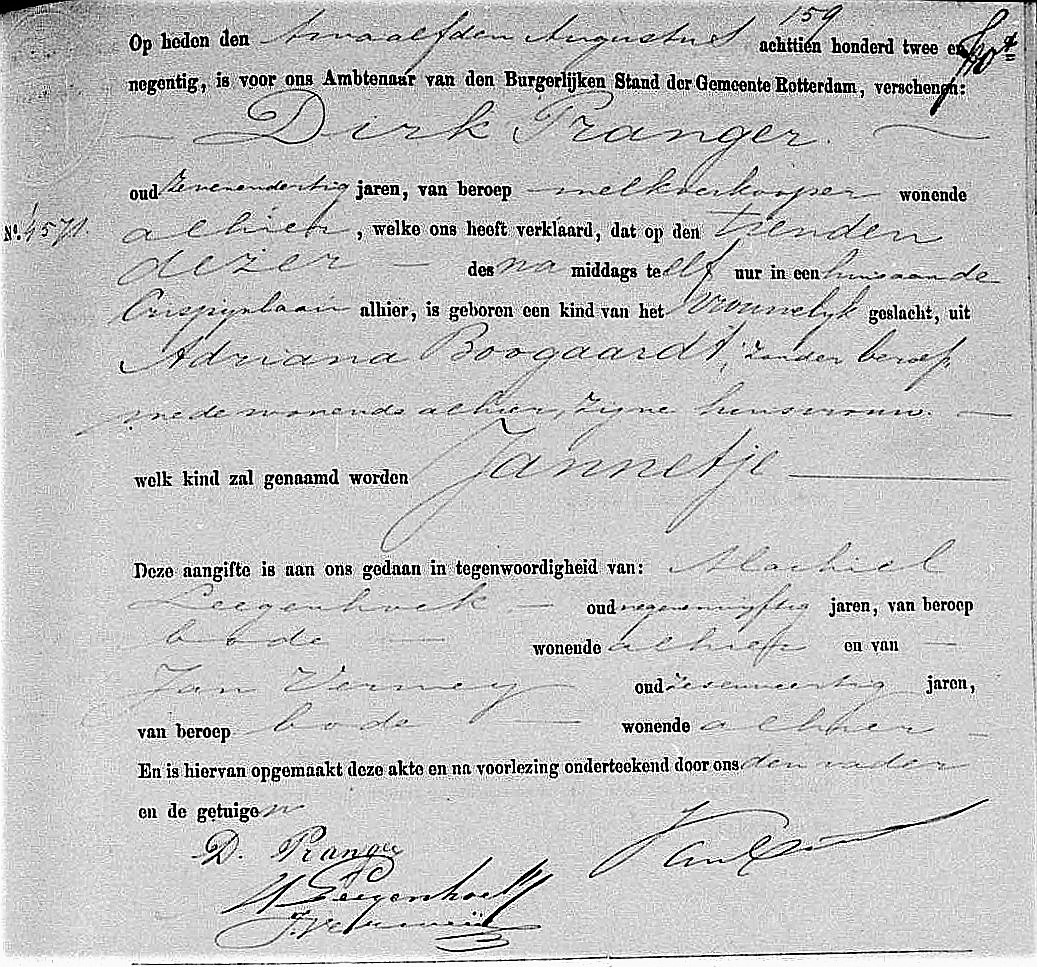 159
Op heden den Twaalfden Augustus achttien honderd twee en
negentig, is voor ons Ambtenaar van den Burgerlijken Stand der Gemeente Rotterdam, verschenen:
Dirk Pranger.
oud zevenendertig jaren, van beroep melkverkooper wonende
No. 4571. alhier, welke ons heeft verklaard, dat op den tienden
dezer des na middags te elf uur in een huis aan de
Crispijnlaan alhier, is geboren een kind van het vrouwelijk geslacht, uit
Adriana Boogaardt, zonder beroep
mede wonende alhier, zijne huisvrouw.
welk kind zal genaamd worden Jannetje
Deze aangifte is aan ons gedaan in tegenwoordigheid van: Machiel
Leegenhoek oud negenenvijftig jaren, van beroep
bode wonende alhier en van
Jan Vermey oud zesenveertig jaren,
van beroep bode wonende alhier
En is hiervan opgemaakt deze akte en na voorlezing onderteekend door ons den vader
en de getuigen
D. Pranger
M Leegenhoek